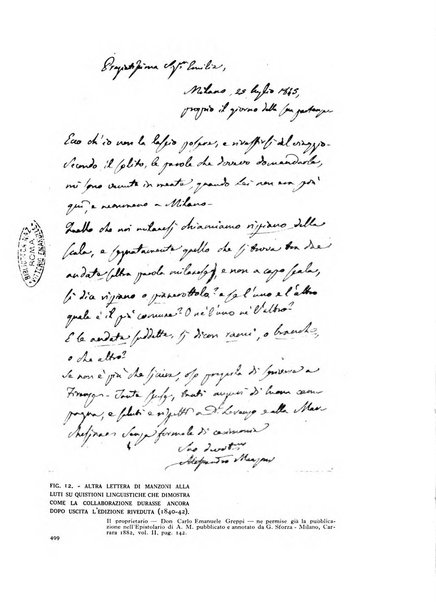 Pregiatissima Sigra Emilia,
Milano, 28 luglio 1845,
proprio il giorno della sua partenza
Ecco ch'io non la lascio posare, e rivattisi dal viaggio.
Secondo il solito, le parole che dovevo domandarle,
mi sono venute in mente, quando Lei non era più
qui, e nemmeno a Milano.
Quello che noi milanesi chiamiamo ripiano della
scala, e segnatamente quello che si trova tra due
andate (altra parola milanese), e non a capo scala,
si dice ripiano o pianerottolo? e se l'uno e l'altro
quale è il più comune? O nè l'uno nè l'altro?
E le andate suddette, si dicon rami, o branche,
o che altro?
Se non è più che sicura, o so pregarla di scrivere a
Firenze. Tante scuse, tanti auguri di buona cam
pagna, e saluti e rispetti a D. Levano e alla Mar
chesina. Senza formole di cerimonia
Suo devot.
Alessandro Manzoni
BIBLIOTECA NAZ.
ROMA
VITTORIO EMANUELE
FIG. 12. - ALTRA LETTERA DI MANZONI ALLA
LUTI SU QUISTIONI LINGUISTICHE CHE DIMOSTRA
COME LA COLLABORAZIONE DURASSE ANCORA
DOPO USCITA L'EDIZIONE RIVEDUTA (1840-42).
Il proprietario — Don Carlo Emanuele Greppi — ne permise già la pubblica-
zione nell'Epistolario di A. M. pubblicato e annotato da G. Sforza - Milano, Car-
rara 1882, vol. II, pag. 142.
499